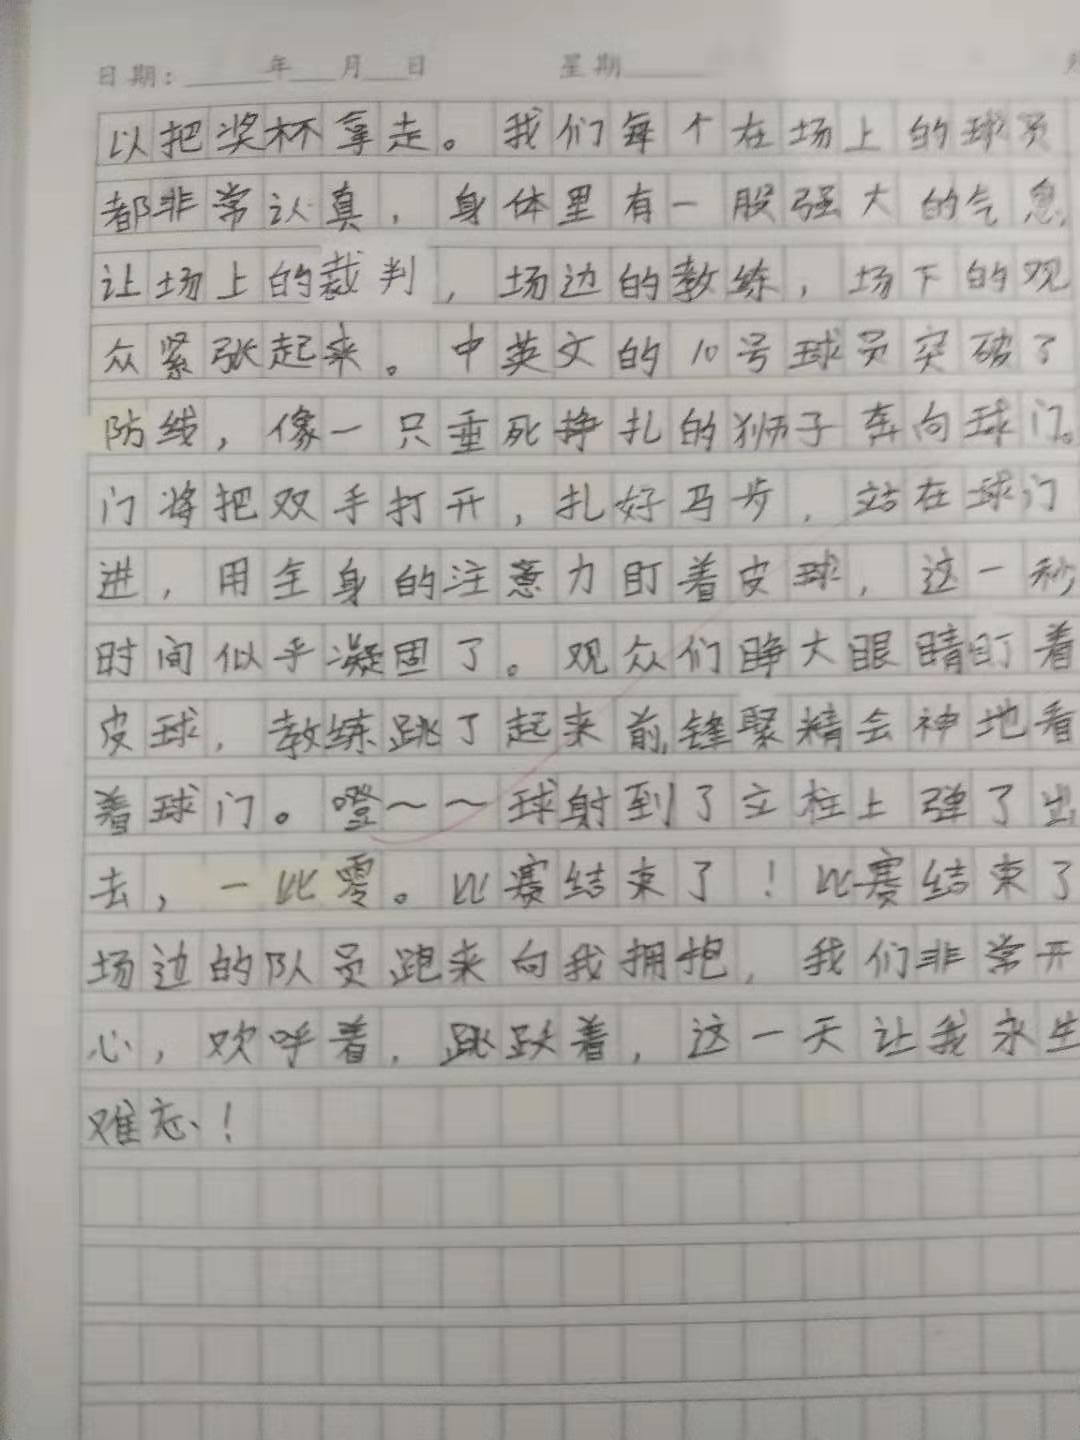 日期：______年___月___日 星期______
以把奖杯拿走。我们每个在场上的球员
都非常认真，身体里有一股强大的气息，
让场上的裁判，场边的教练，场下的观
众紧张起来。中英文的10号球员突破了
防线，像一只垂死挣扎的狮子奔向球门。
门将把双手打开，扎好马步，站在球门
进，用全身的注意力盯着皮球，这一秒
时间似乎凝固了。观众们睁大眼睛盯着
皮球，教练跳了起来前,锋聚精会神地看
着球门。噔～～球射到了立柱上弹了出
去，一比零。比赛结束了！比赛结束了
场边的队员跑来向我拥抱，我们非常开
心，欢呼着，跳跃着，这一天让我永生
难忘！